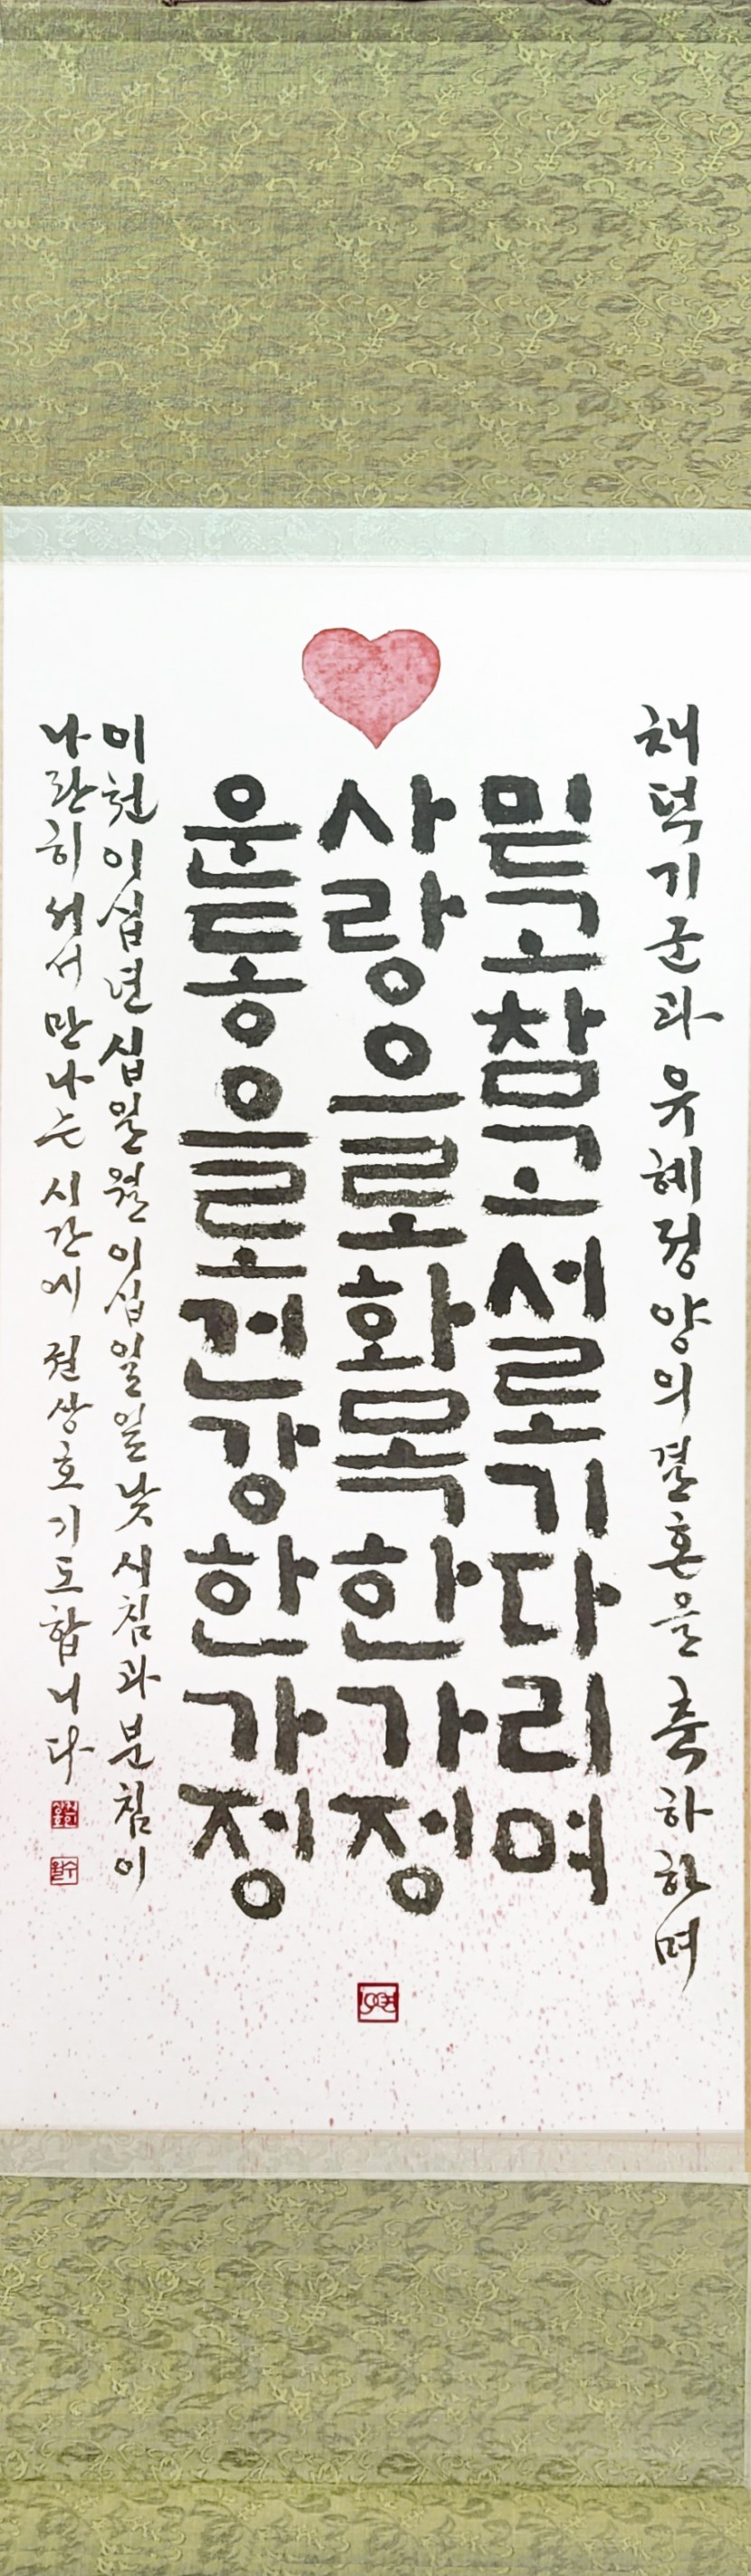 채덕기군과 유혜정양의 결혼을 축하하며
믿고 참고 서로 기다리며
사랑으로 화목한 가정
운동으로 건강한 가정
이천이십년 십일월 이십일일 낮 시침과 분침이
나란히 서서 만나는 시간에 권상호 기도합니다